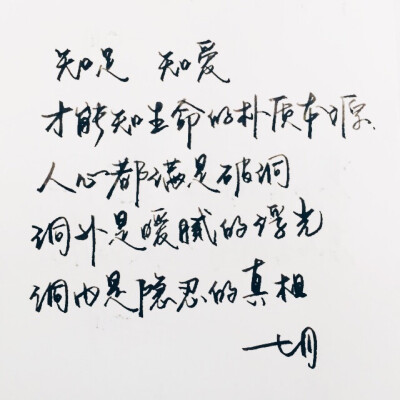 知足 知爱
才能知生命的朴质本源.
人心都满是破洞
洞外是暧腻的浮光
洞内是隐忍的真相
七月